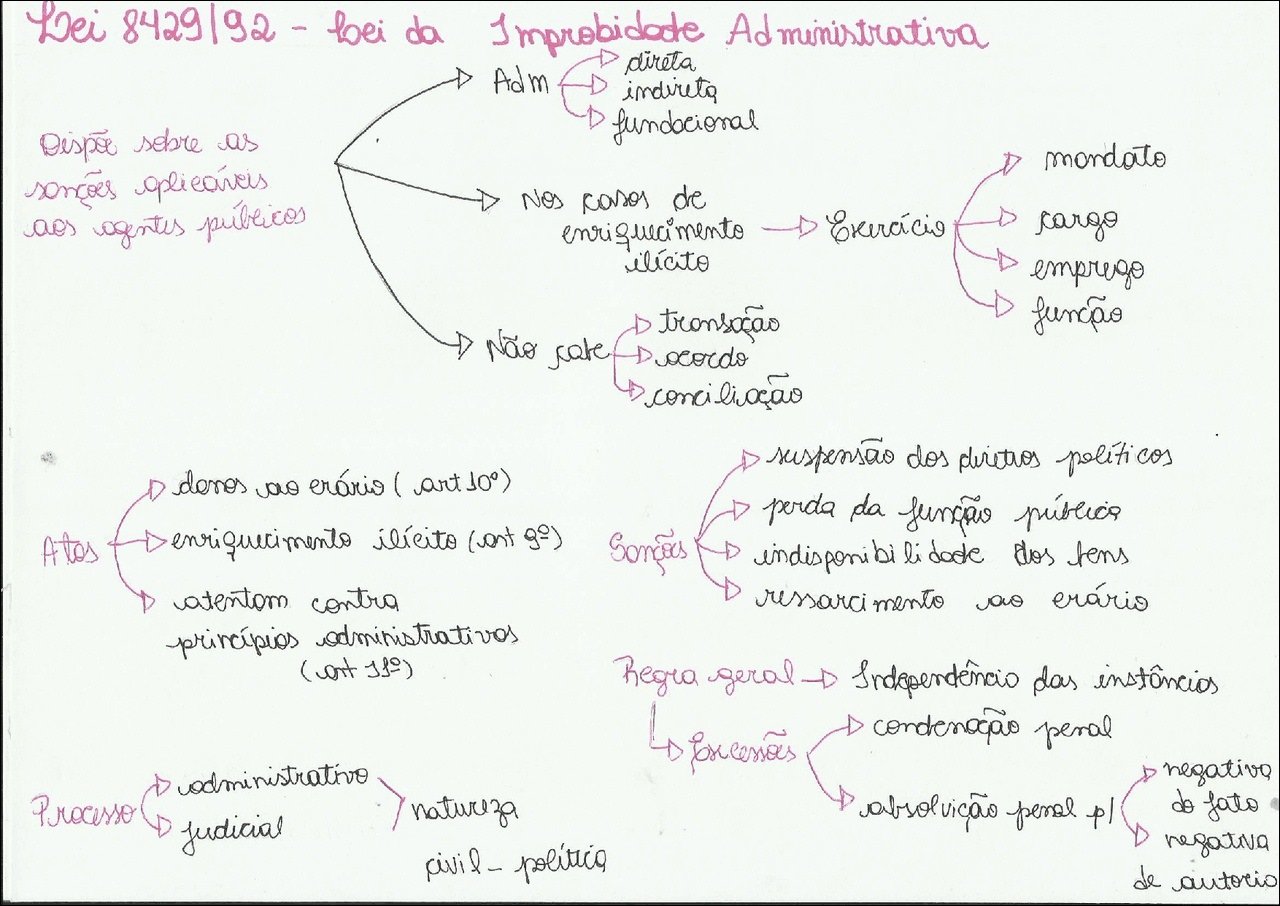 Lei 8429/92 - Lei da Improbidade Administrativa
Dispõe sobre as
sanções aplicáveis
aos agentes públicos
Adm
direta
indireta
fundacional
Nos casos de
enriquecimento
ilícito
Exercício
mandato
cargo
emprego
função
Não cabe
transação
acordo
conciliação
Atos
danos ao erário (art 10º)
enriquecimento ilícito (art 9º)
atentam contra
princípios administrativos
(art 11º)
Sanções
suspensão dos diretos políticos
perda da função pública
indisponibilidade dos bens
ressarcimento ao erário
Regra geral
Independência das instâncias
Excessões
condenação penal
absolvição penal p/
negativa
do fato
negativa
de autoria
Processo
administrativo
judicial
natureza
civil - política